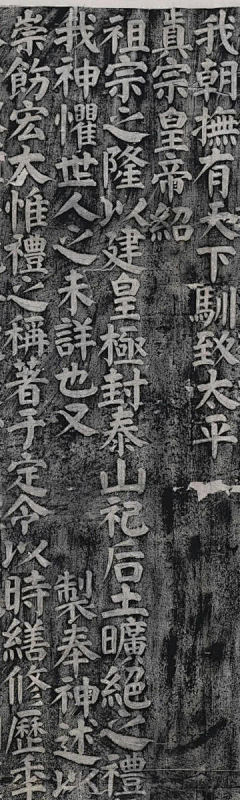 我朝撫有天下馴致太平
真宗皇帝紹
祖宗之隆以建皇極封泰山祀后土曠絕之禮
我神懼世人之未詳也又 製奉神述以
崇飭宏大惟禮之稱著于定令以時繕修歷年